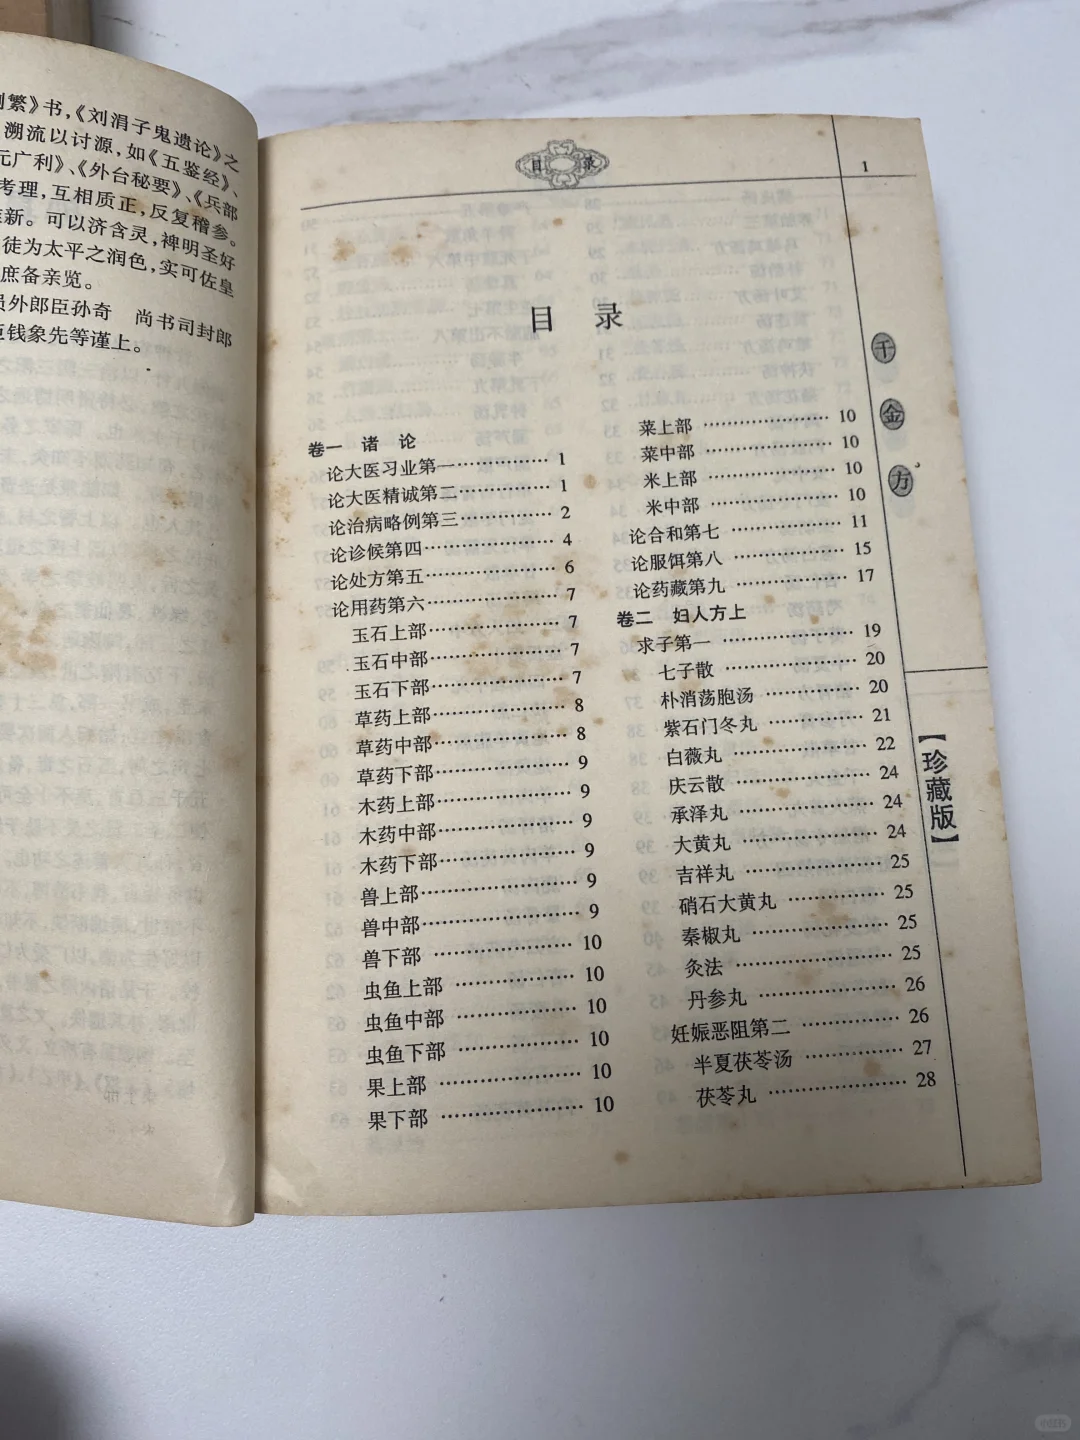 繁》书，《刘涓子鬼遗论》之
溯流以讨源，如《五鉴经》、
元广利》、《外台秘要》、《兵部
考理，互相质正，反复稽参。
新。可以济含灵，裨明圣好
徒为太平之润色，实可佐皇
庶备亲览。
员外郎臣孙奇 尚书司封郎
臣钱象先等谨上。
目录
1
目 录
卷一 诸 论
论大医习业第一…………… 1
论大医精诚第二…………… 1
论治病略例第三…………… 2
论诊候第四…………… 4
论处方第五…………… 6
论用药第六…………… 7
玉石上部…………… 7
玉石中部…………… 7
玉石下部…………… 7
草药上部…………… 8
草药中部…………… 8
草药下部…………… 9
木药上部…………… 9
木药中部…………… 9
木药下部…………… 9
兽上部…………… 9
兽中部…………… 9
兽下部…………… 10
虫鱼上部…………… 10
虫鱼中部…………… 10
虫鱼下部…………… 10
果上部…………… 10
果下部…………… 10
菜上部…………… 10
菜中部…………… 10
米上部…………… 10
米中部…………… 10
论合和第七…………… 11
论服饵第八…………… 15
论药藏第九…………… 17
卷二 妇人方上
求子第一…………… 19
七子散…………… 20
朴消荡胞汤…………… 20
紫石门冬丸…………… 21
白薇丸…………… 22
庆云散…………… 24
承泽丸…………… 24
大黄丸…………… 24
吉祥丸…………… 25
硝石大黄丸…………… 25
秦椒丸…………… 25
灸法…………… 25
丹参丸…………… 26
妊娠恶阻第二…………… 26
半夏茯苓汤…………… 27
茯苓丸…………… 28
千金方
【珍藏版】
小红书